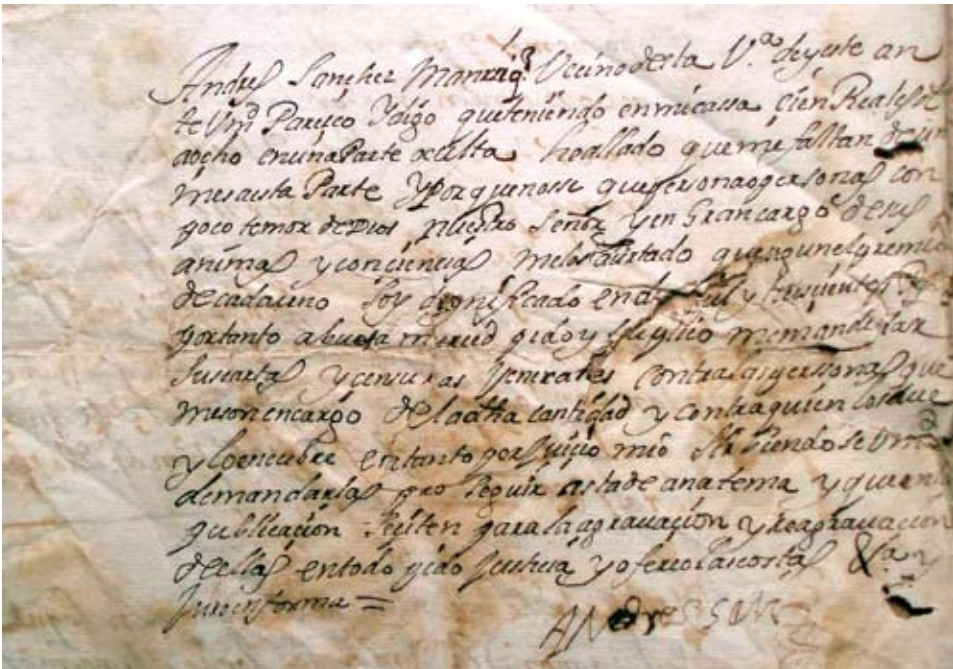 Andres Sanchez Manrriq. Veçino desta V.ª de yeste an
te Vmd Paresco Y digo que teniendo en mi cassa çien Reales de
aocho en una Parte oculta he allado que me faltan de un
mes a esta Parte y por que no sse que persona o personas con
poco temor de Dios nuestro Señor y en Gran cargo de sus
animas y conciençias me los an urtado que
de cada uno soy dignificado en
por tanto a buesa merced pido y suplico me mande dar
sus cartas y censuras Jenerales contra las personas que
me son en cargo de la dha cantidad y contra quien lo save
y lo encubre en tanto perjuiçio mio sirviendose Vmd
de mandarlas pro seguir asta de anatema y que en
publicaçion se çiten para la agravaçion y reagravacion
de ellas en todo pido Justiçia y ofresco las costas &ª y
Juro en forma =
Andres